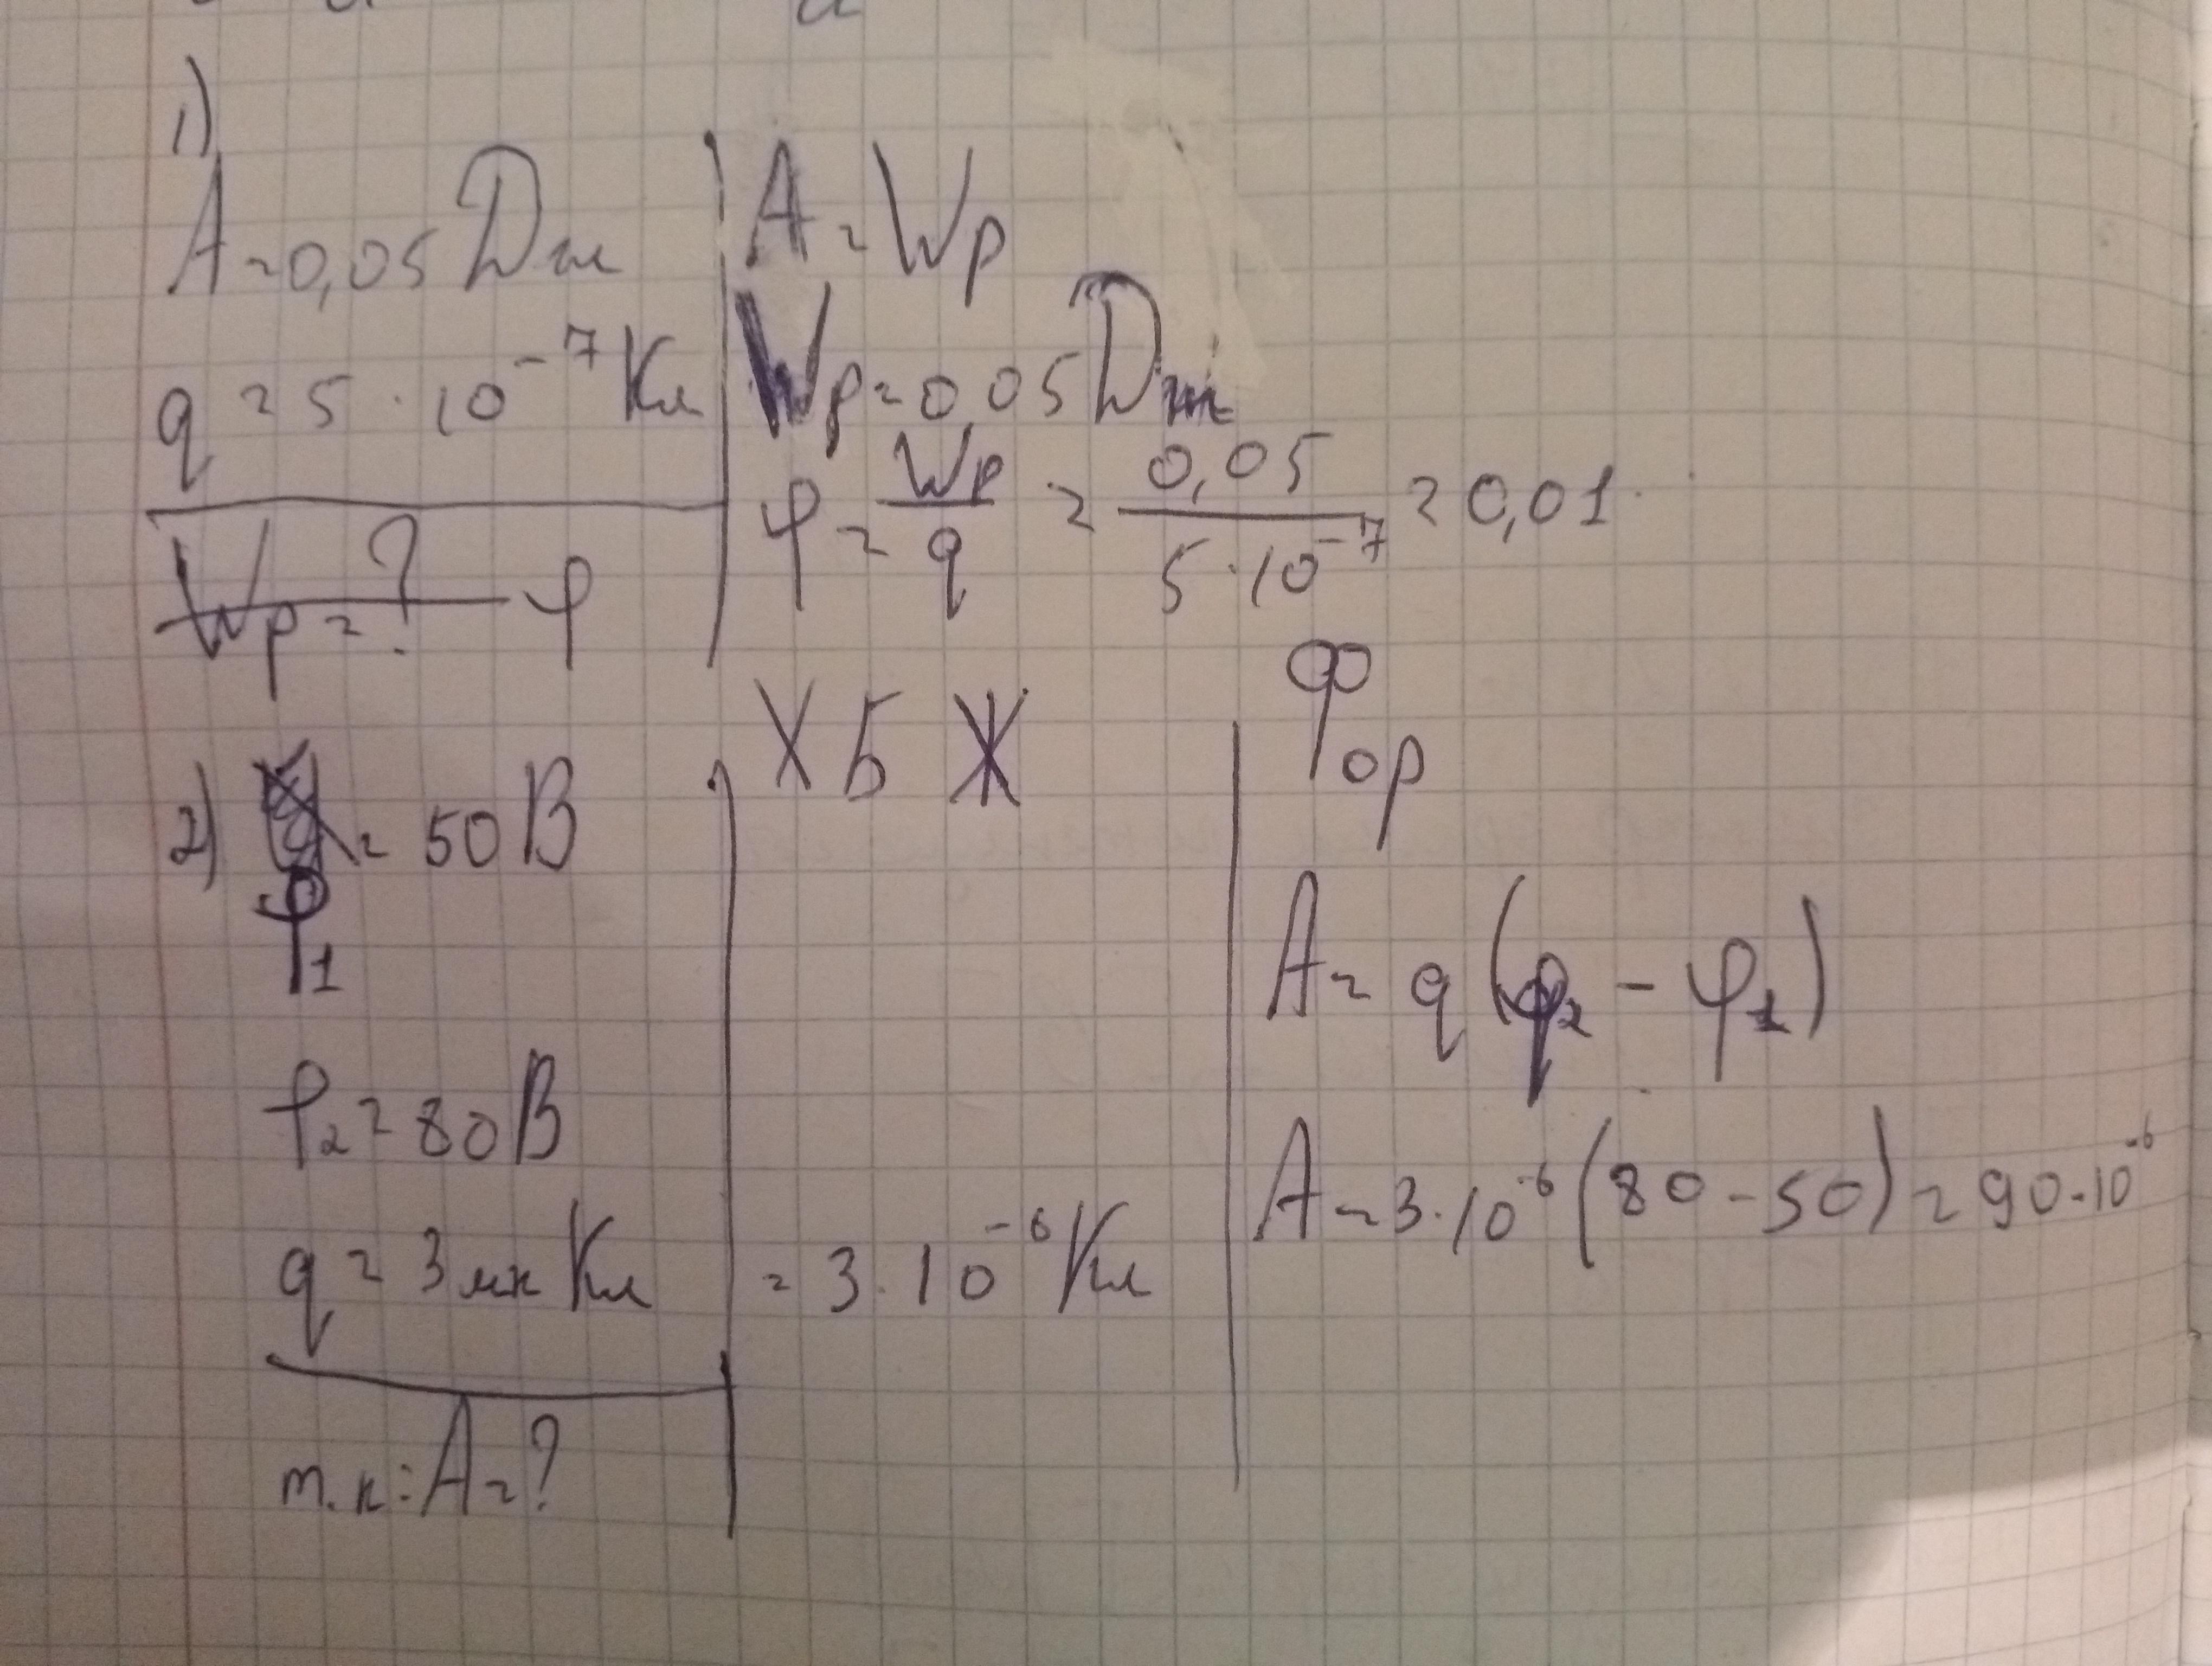 1)
A = 0,05 Дж
q = 5 · 10⁻⁷ Кл
Wp = ? φ
A = Wp
Wp = 0,05 Дж
φ = Wp/q = 0,05/5·10⁻⁷ = 0,01
Х Б Ж
φор
2) φ₁ = 50 В
φ₂ = 80 В
q = 3 мк Кл = 3 · 10⁻⁶ Кл
т. к: A = ?
A = q (φ₂ – φ₁)
A = 3 · 10⁻⁶ (80 – 50) = 90 · 10⁻⁶